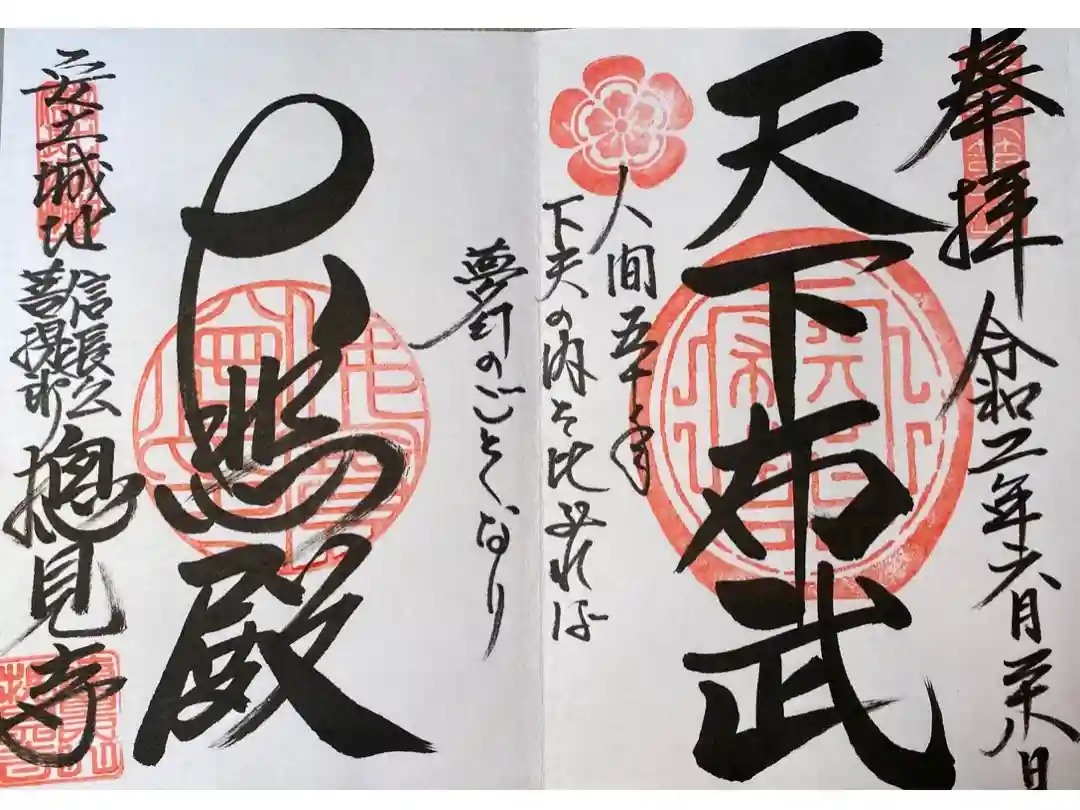 奉拝 令和二年六月廿八日
天下布武
人間五十年
下天の内を比ぶれば
夢幻のごとくなり
大悲殿
安土城址
信長公
菩提所
摠見寺